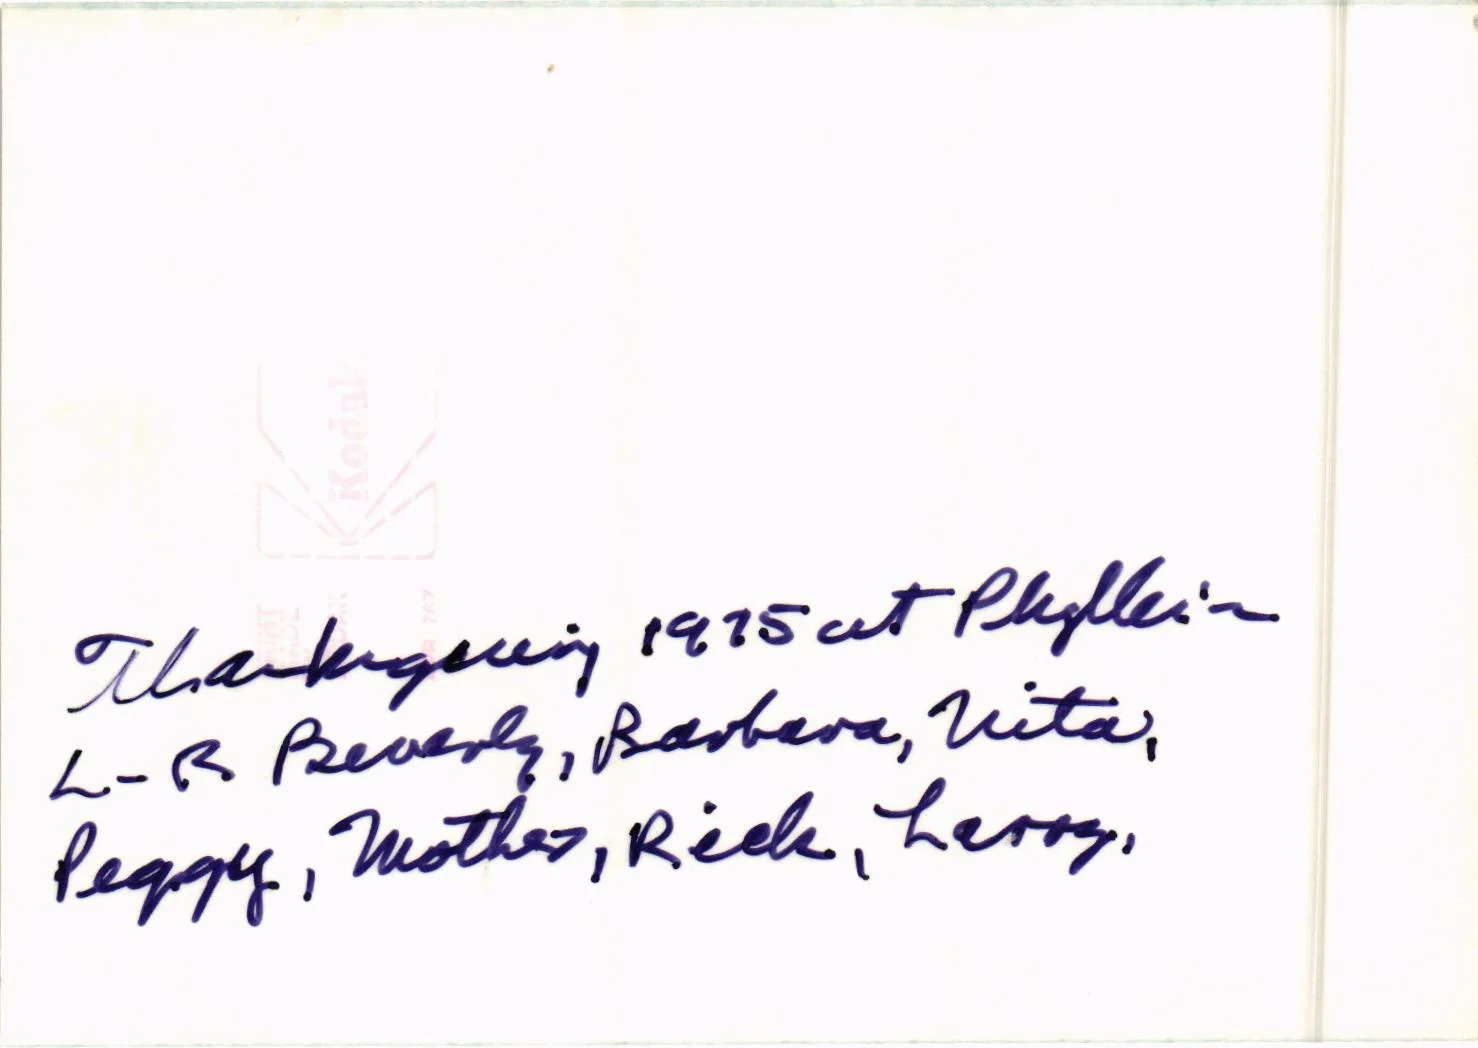 Thanksgiving 1975 at Phyllis's
L-R Beverly, Barbara, Nita,
Peggy, Mother, Rick, Larry.
Kodak